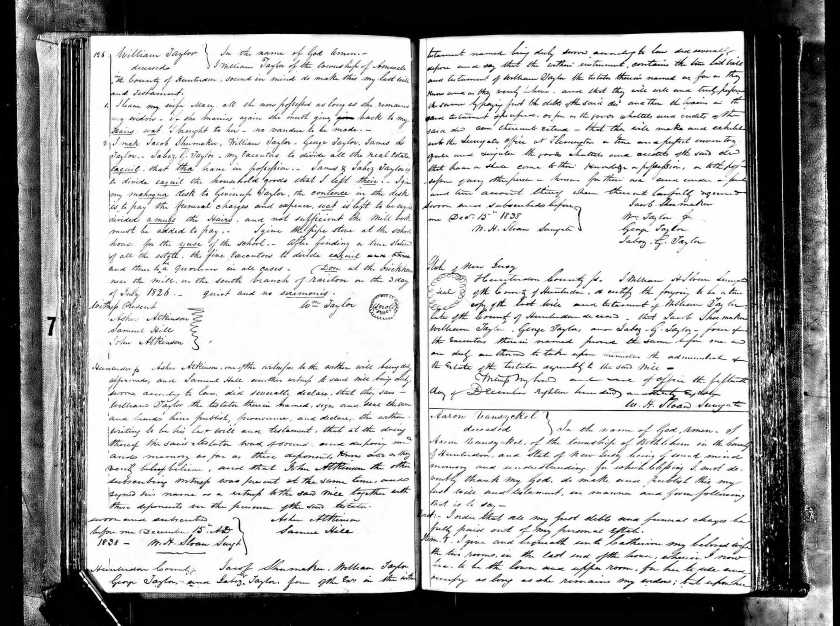 126 William Taylor } In the name of God Amen –
deceased } I William Taylor of the township of
The County of Hunterdon. Sound in mind do make this my last will
and testament.
1. I leave my wife Mary all she now possesses as long as she remains
my widow. if she marries again she must give back to my
Hairs wat I haught to her – no vandue to be made –
2. I mak Jacob Shumaker, William Taylor, George Taylor, James
Taylor, Jabez G. Taylor, my Executors to divide all the real estate
equil that tha have in possession. James & Jabez Taylor
to divide equil the household goods that I left
my mahogna desk to Taylor, the contence in the desk
is to pay the funeral charges and expence, wat is left to be
divided amuke the Hairs, and not sufficient the Mill book
must be added to pay. I give the pipe stove at the school
house for the yuse of the school – After finding a true statem
of all the the five Executors to divide
and three a quorum in all cases. Don at the brickhous
near the mill, on the south branch of Raritan on the 3 day
of July 1826 – quiet and no
Witness Present Wm Taylor
Asher Atkinson
Samuel Hill
John Atkinson
Hunterdon ss Asher Atkinson, one of the witnesses to the within will being duly
affirmed, and Samuel Hill another witness to said will being duly
sworn according to law, did severally declare, that they saw
William Taylor the testator therein named, sign and seal the same
and heard him publish, pronounce and declare, the within
writing to be his last will and testament, that at the doing
thereof the said testator was of sound and disposing mind
and memory as far as these deponents know and as they
verily believe, and that John Atkinson the other
subscribing witness was present at the same time and
signed his name as a witness to the said will together with
these deponents in the presence of the said testator
sworn and subscribed Asher Atkinson
before me December 15th AD Samuel Hill
1838 – W. H. Sloan Surgt
Hunterdon County, Jacob Shumaker, William Taylor
George Taylor and Jabez Taylor four of the Exrs in the within
testament named being duly sworn according to law did severally
depose and say that the within instrument, contains the true last will
and testament of William Taylor the testator therein named as far as they
know and as they verily believe and that they will well and truly perform
the same by paying first the debts of the said decd and then the legacies in the
said testament specified, so far as the goods chattels and credits of the
said decd can thereunto extend – that they will make and exhibit
into the Surrogates office at Flemington a true and perfect inventory
of all and singular the goods chattels and credits of the said decd
that have or shall come to their knowledge or possession, or to the possession
of any other person or persons for their use and render a just
and true account thereof when thereunto lawfully required
sworn and subscribed before } Jacob Shumaker
me Decr 15th 1838 } Wm Taylor Jr
W. H. Sloan Surgate } George Taylor
Jabez G. Taylor
State of New Jersey
Hunterdon County ss. I William H Sloan Surrogate
of the County of Hunterdon, do certify the foregoing to be a true
copy of the last Will and testament of William Taylor
late of the County of Hunterdon deceased. that Jacob Shumaker
William Taylor, George Taylor, and Jabez G. Taylor, four of
the Executors therein named proved the same before me and
are duly authorized to take upon themselves the administration of
the Estate of the testator agreeably to the said Will –
Witness my hand and seal of office the fifteenth
day of December eighteen hundred and thirty eight
W. H. Sloan Surgate
Aaron Vansyckel }
deceased } In the name of God, Amen. I
Aaron Vansyckel, of the township of Bethlehem in the County
of Hunterdon, and State of New Jersey being of sound mind
memory and understanding for which blessing I most de
voutly thank my God, do make and publish this my
last will and testament, in manner and form following
that is to say –
I order that all my just debts and funeral charges be
fully paid out of my personal estate.
Item 2. I give and bequeath unto Catharine my beloved wife
the two rooms, in the east end of the house, wherein I now
live. to be the lower and upper room, for her to use and
occupy as long as she remains my widow, but upon her